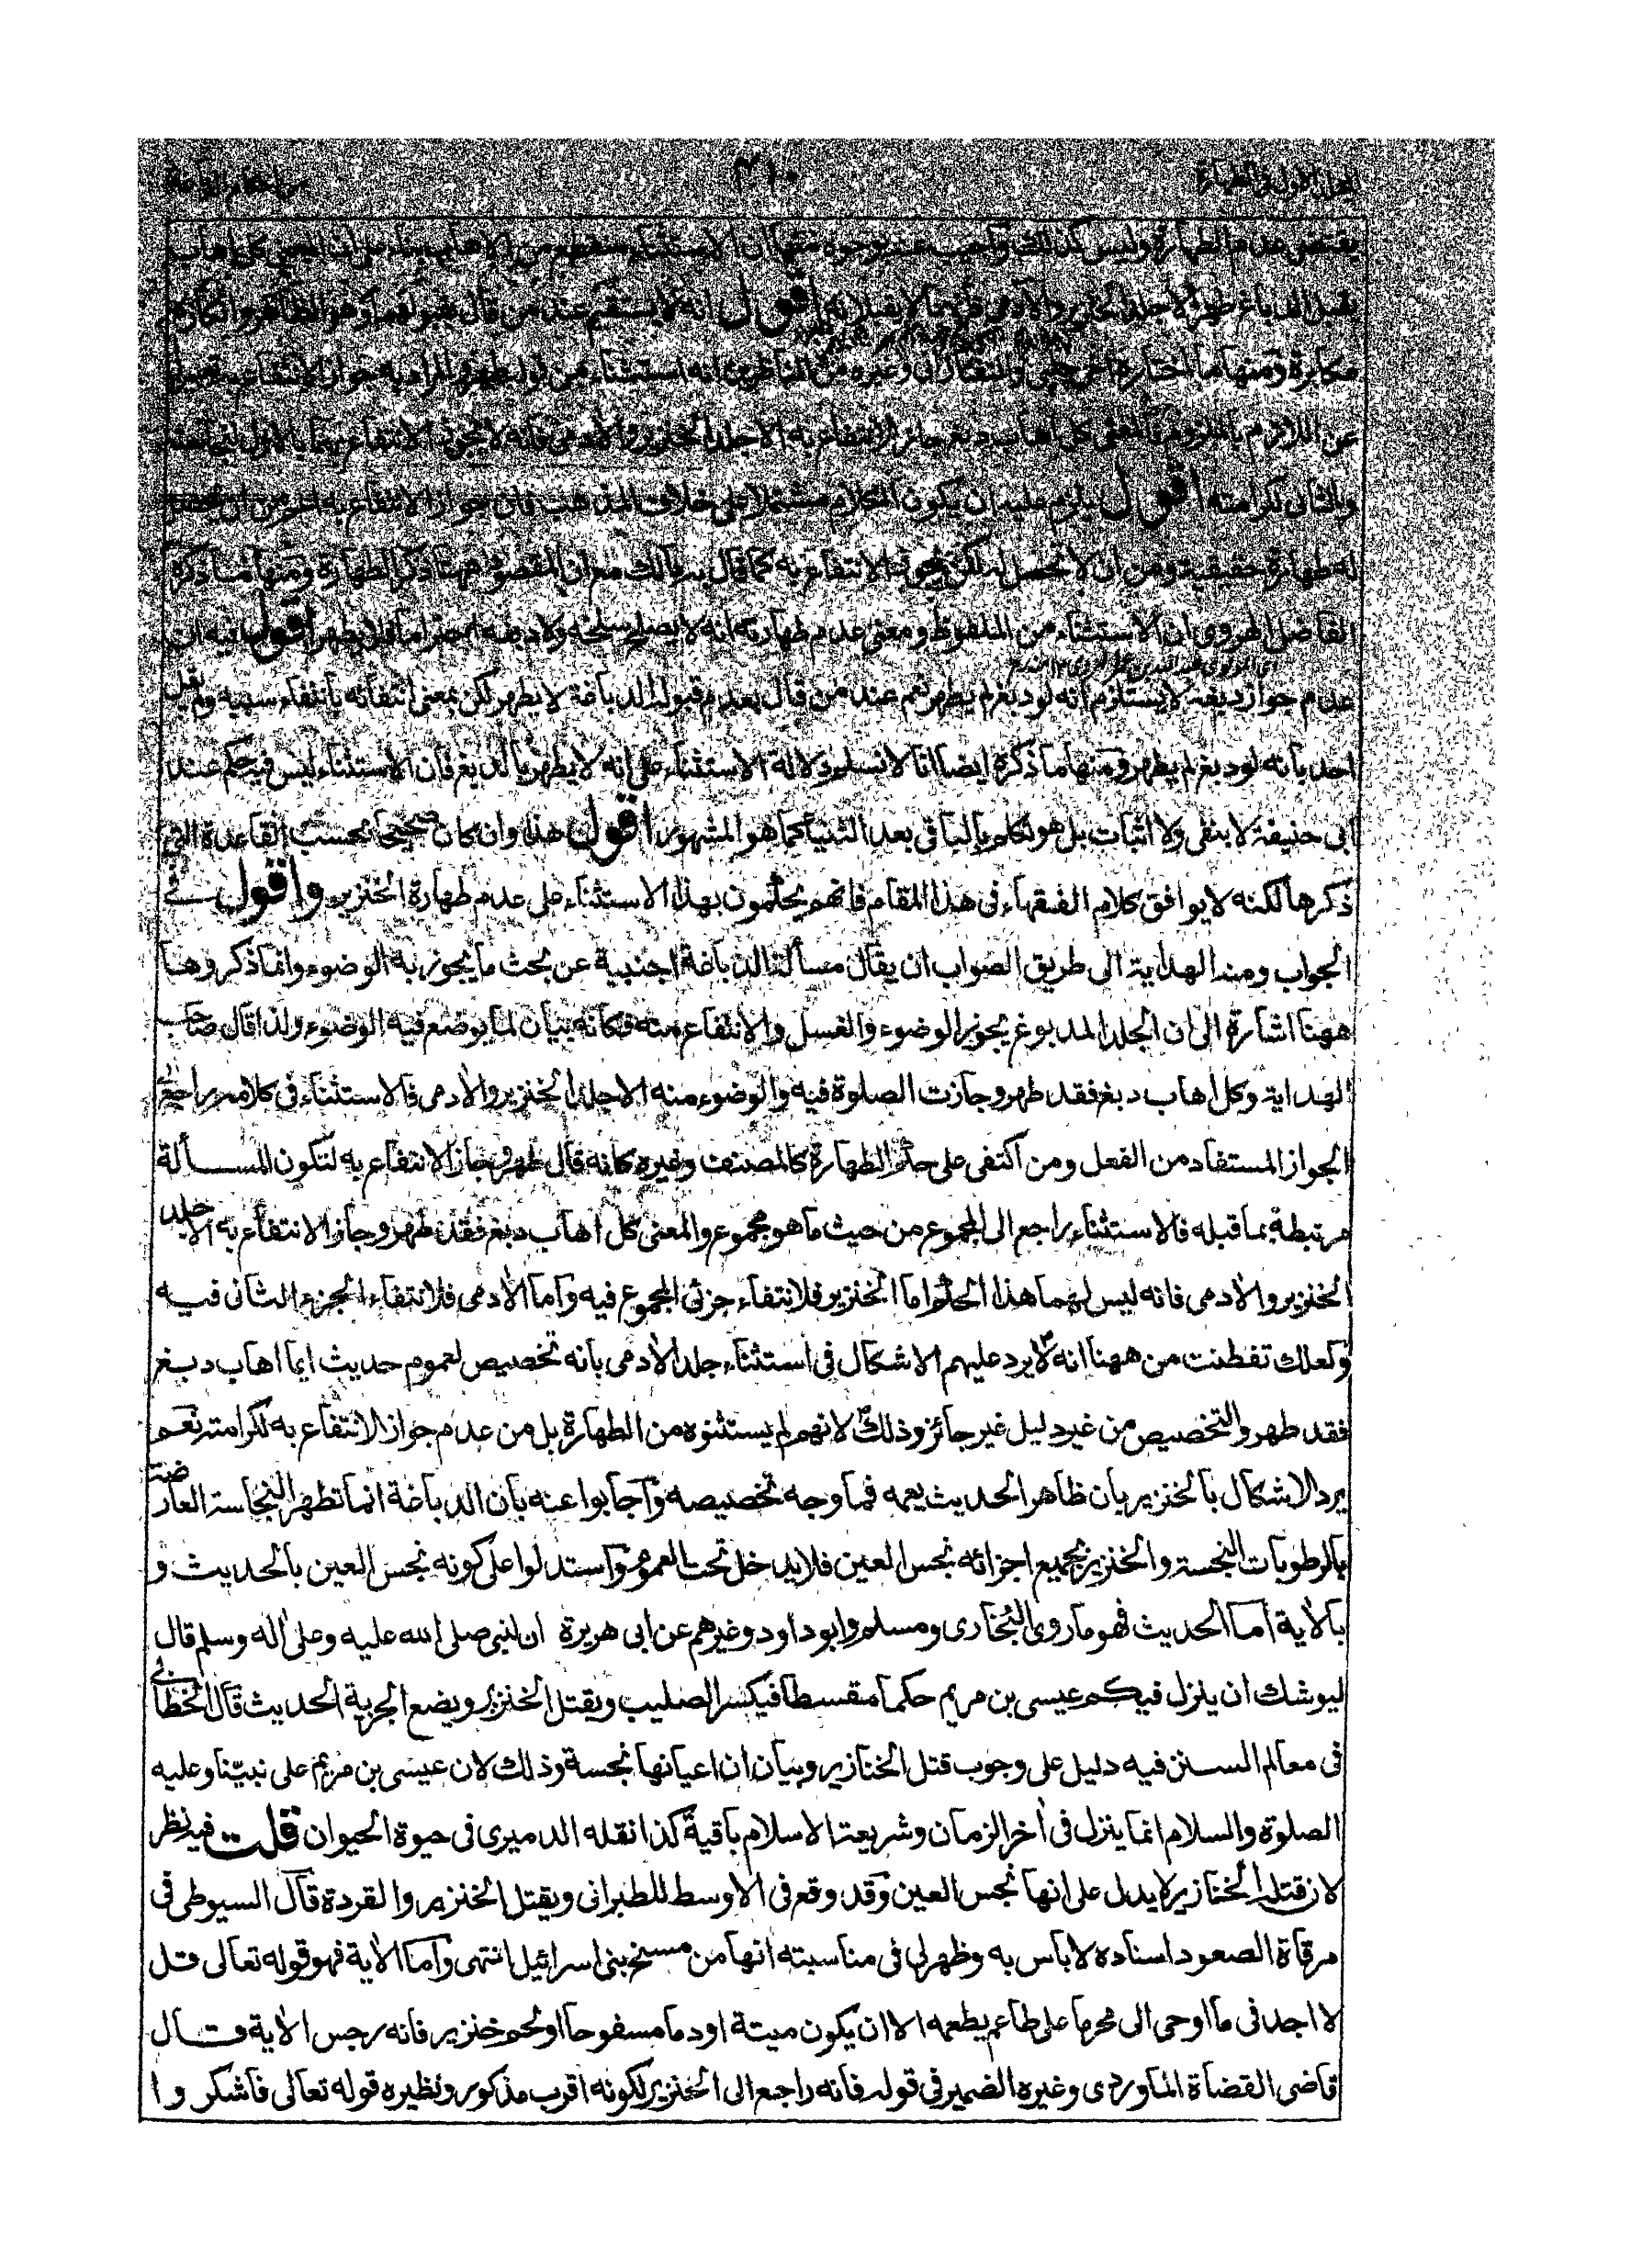 ٤١٠
يقتضي عدم الطهارة وليس كذلك وآجيب عنه بوجوه منها ان الاستثناء منقطع من الاهاب
يقبل الدباغ طهر الا جلد الخنزير والادمى فانهما لا يقبلانه اقول انه لا يستقيم عند من قال بقبولهما وهو الظاهر وانكاره
مكابرة ومنها ما اختاره اخى چلپى والتفتازانى وغيره من الناظرين انه استثناء من قوله طهر والمراد به جواز الانتفاع به تعبيرا
عن اللازم بالملزوم فالمعنى كل اهاب دبغ جاز الانتفاع به الا جلد الخنزير والادمى فانه لا يجوز الانتفاع بهما بالاول لنجاسته
والثانى لكرامته اقول يلزم عليه ان يكون الكلام مشتملا على خلاف المذهب فان جواز الانتفاع به اعم من ان يحصل
له طهارة حقيقية ومن ان لا تحصل له لكن يجوز الانتفاع به كما قال به مالك مع ان المقصود ههنا ذكر الطهارة ومنها ما ذكره
الفاضل الهروى ان الاستثناء من الملفوظ ومعنى عدم طهارته انه لا يصلح سلخه ولا دبغه احتراما فلا يطهر اقول فيه ان
عدم جواز دبغه لا يستلزم انه لو دبغ لم يطهر نعم عند من قال بعدم قبوله الدباغة لا يطهر لكن بمعنى انتفائه بانتفاء سببه ولم يقل
احد بانه لو دبغ لم يطهر ومنها ما ذكره ايضا انا لا نسلم دلالة الاستثناء على انه لا يطهر بالدبغ فان الاستثناء ليس فيه حكم عند
ابى حنيفة لا بنفى ولا اثبات بل هو تكلم بالباقى بعد الثنيا كما هو المشهور اقول هذا وان كان صحيحا بحسب القاعدة التى
ذكرها لكنه لا يوافق كلام الفقهاء فى هذا المقام فانهم يحكمون بهذا الاستثناء على عدم طهارة الخنزير واقول فے
الجواب ومنه الهداية الى طريق الصواب ان يقال مسألة الدباغة اجنبية عن بحث ما يجوز به الوضوء وانما ذكروها
ههنا اشارة الى ان الجلد المدبوغ يجوز الوضوء والغسل والانتفاع منه فكانه بيان لما يوضع فيه الوضوء ولذا قال صاحب
الهداية وكل اهاب دبغ فقد طهر وجازت الصلوة فيه والوضوء منه الا جلد الخنزير والادمى فالاستثناء فى كلامه راجع الى
الجواز المستفاد من الفعل ومن اكتفى على حكم الطهارة كالمصنف وغيره كانه قال طهر وجاز الانتفاع به لتكون المسألة
مرتبطة بما قبله فالاستثناء راجع الى المجموع من حيث ما هو مجموع والمعنى كل اهاب دبغ فقد طهر وجاز الانتفاع به الا جلد
الخنزير والادمى فانه ليس لهما هذا الحكم اما الخنزير فلانتفاء جزئى المجموع فيه وآما الادمى فلانتفاء الجزء الثانى فيه
ولعلك تفطنت من ههنا انه لا يرد عليهم الاشكال فى استثناء جلد الادمى بانه تخصيص لعموم حديث ايما اهاب دبغ
فقد طهر والتخصيص من غير دليل غير جائز وذلك لانهم لم يستثنوه من الطهارة بل من عدم جواز الانتفاع به لكرامته نعم
يرد الاشكال بالخنزير بان ظاهر الحديث يعمه فما وجه تخصيصه وآجابوا عنه بان الدباغة انما تطهر النجاسة العارضة
بالرطوبات النجسة والخنزير بجميع اجزائه نجس العين فلا يدخل تحت العموم وآستدلوا على كونه نجس العين بالحديث و
بالاية آما الحديث فهو ما روى البخارى ومسلم وابو داود وغيرهم عن ابى هريرة ان لنبى صلى الله عليه وعلى آله وسلم قال
ليوشك ان ينزل فيكم عيسى بن مريم حكما مقسطا فيكسر الصليب ويقتل الخنزير ويضع الجزية الحديث قال الخطابى
فى معالم السنن فيه دليل على وجوب قتل الخنازير وبيان ان اعيانها نجسة وذلك لان عيسى بن مريم على نبينا وعليه
الصلوة والسلام انما ينزل فى اخر الزمان وشريعة الاسلام باقية كذا نقله الدميرى فى حيوة الحيوان قلت فيه نظر
لان قتل الخنازير لا يدل على انها نجس العين وقد وقع فى الاوسط للطبرانى ويقتل الخنزير والقردة قال السيوطى فى
مرقاة الصعود اسناده لا باس به وظهر لى فى مناسبته انها من مسخ بنى اسرائيل انتهى وآما الاية فهو قوله تعالى قل
لا اجد فى ما اوحى الى محرما على طاعم يطعمه الا ان يكون ميتة او دما مسفوحا او لحم خنزير فانه رجس الاية قال
قاضى القضاة الماوردى وغيره الضمير فى قوله فانه راجع الى الخنزير لكونه اقرب مذكور ونظيره قوله تعالى فاشكروا